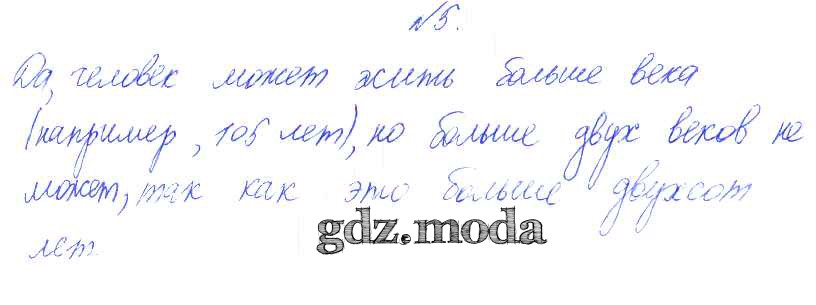 №5.
Да, человек может жить больше века
(например, 105 лет), но больше двух веков не
может, так как это больше двухсот
gdz.moda
лет.